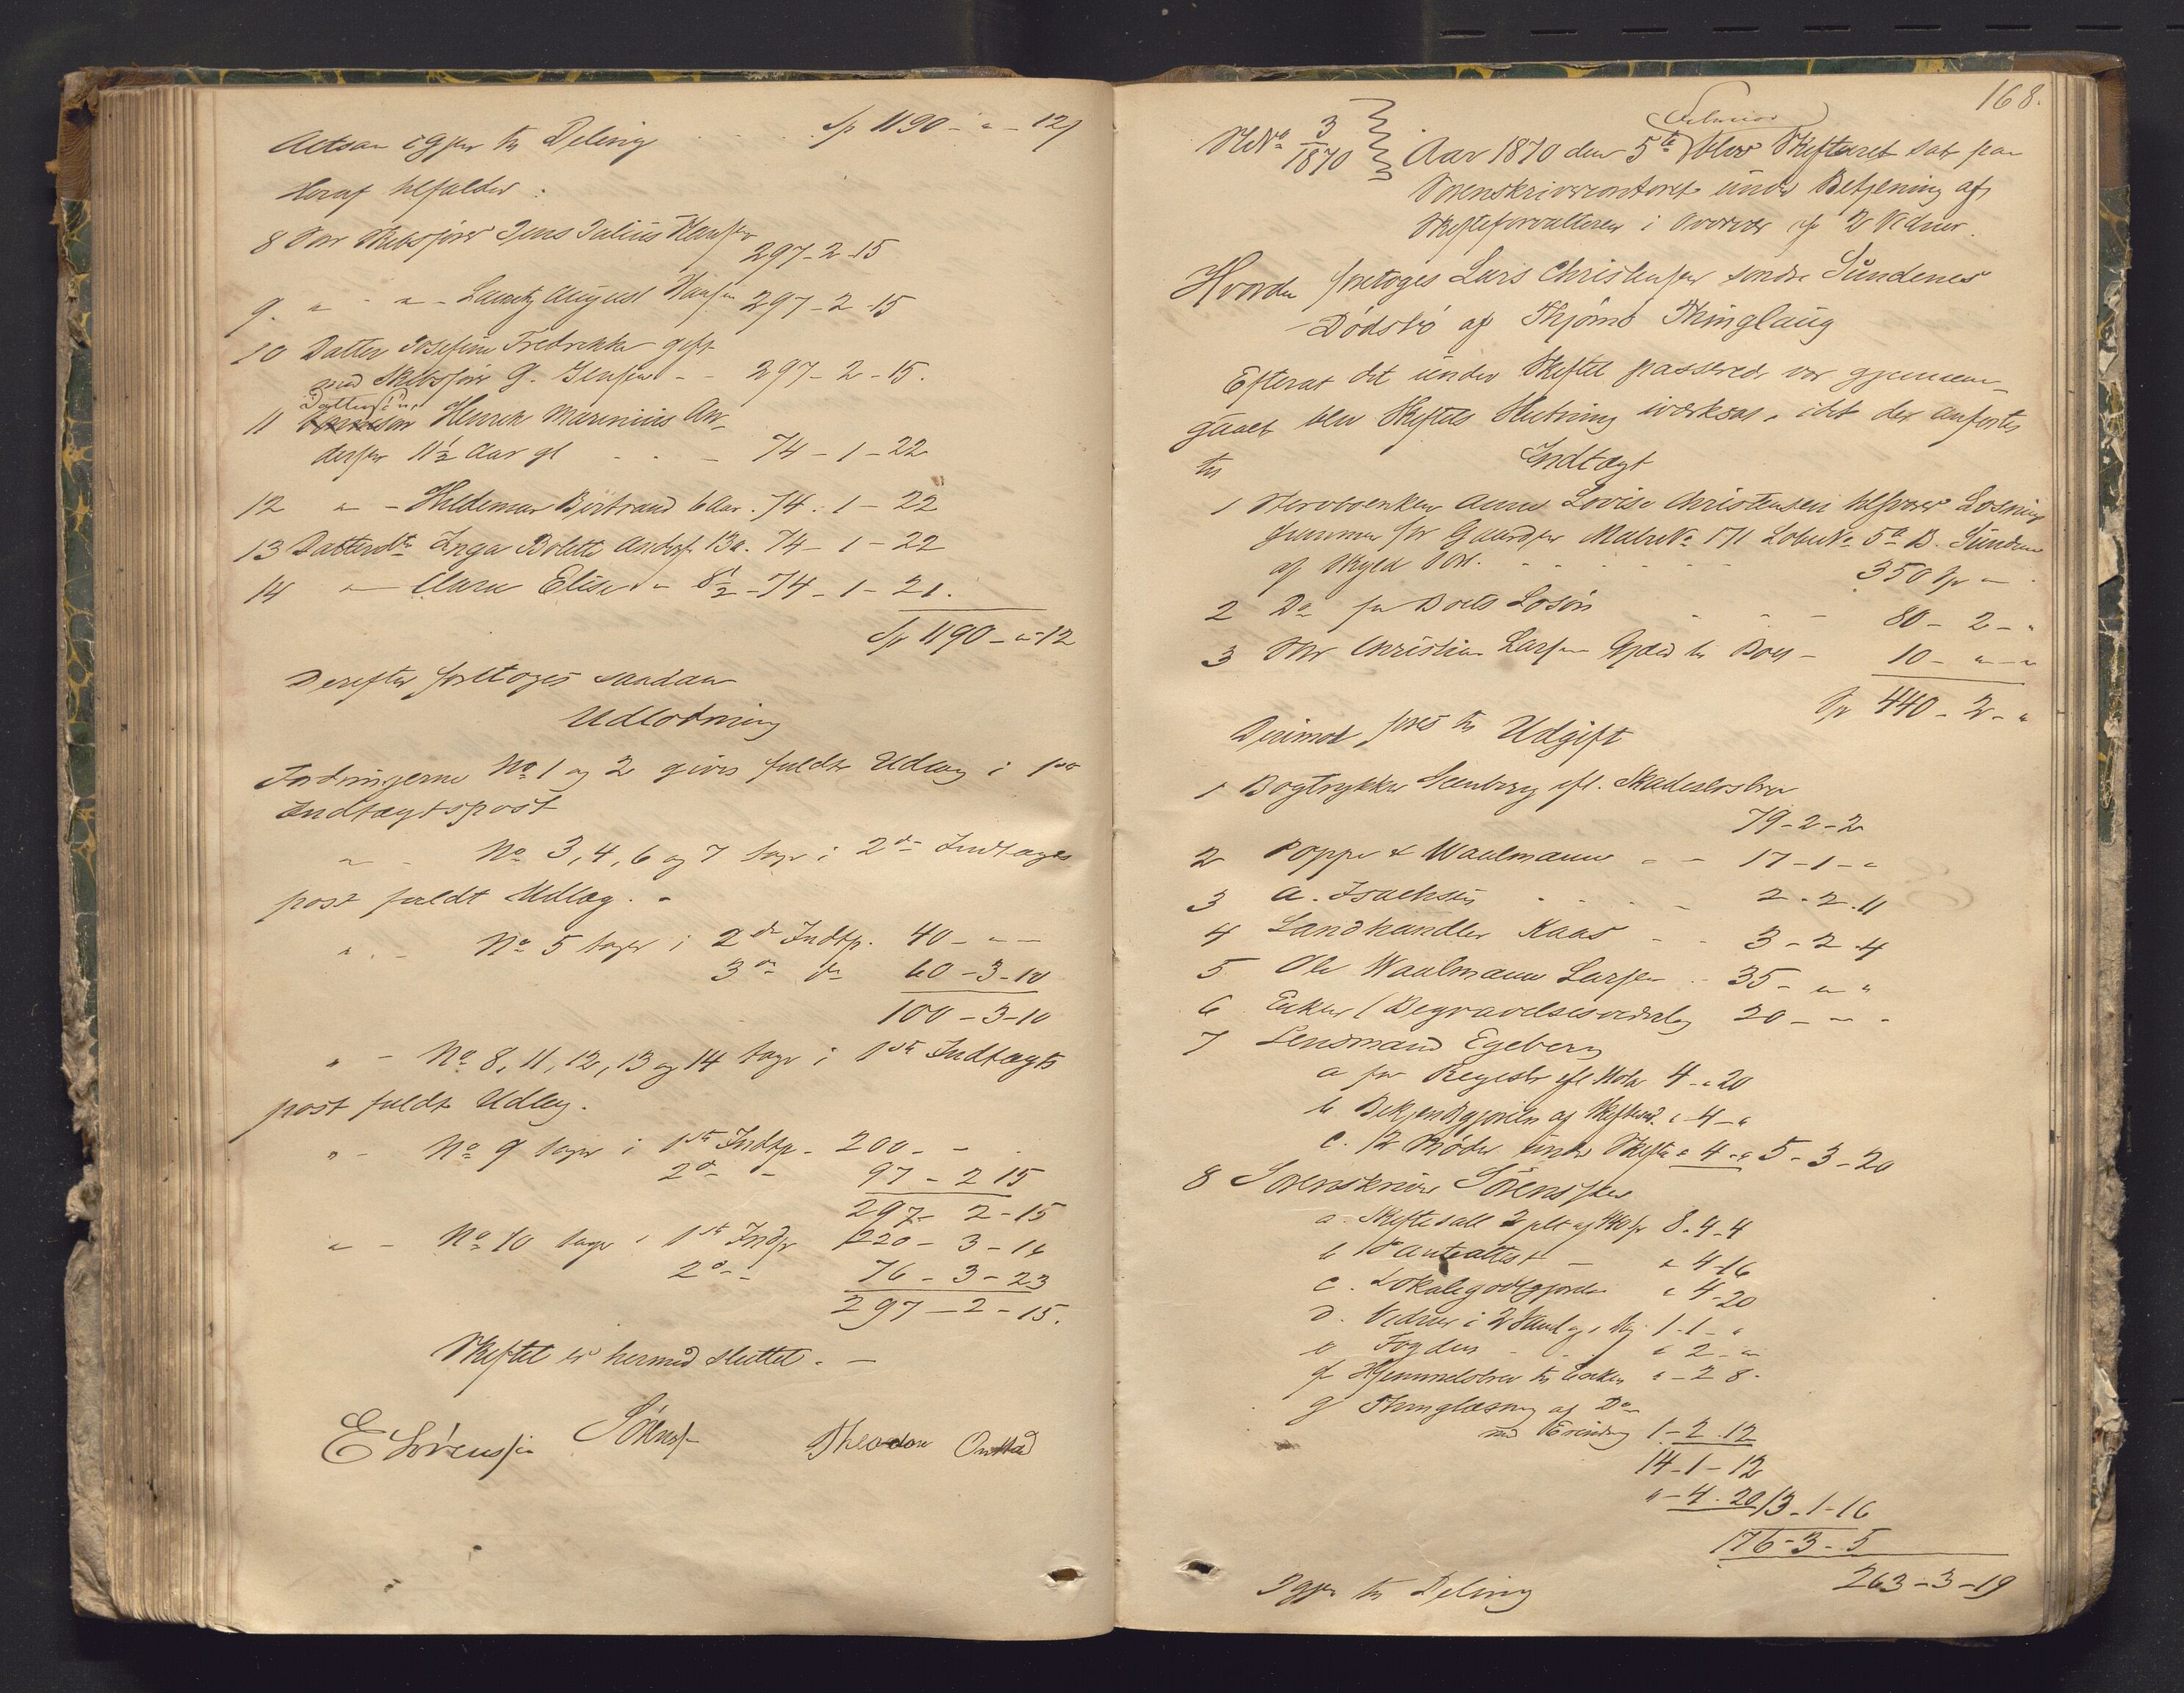 Altsaa igjen til Deling . . . Sp 1190 - " - 12
Heraf tilfalder:
8 Søn Skibsfører Jens Julius Hansen
297 - 2 - 15
9. " - " - Lauritz August Hansen 297 - 2 - 15
10 Datter Josefine Fredrikke gift
med Skibsfører G. Jensen - - 297 - 2 - 15.
Dattersøn
11 Henrik Marinius An-
dersen 11½ Aar gl . . - 74 - 1 - 22
12 " - Hildemar Bertrand 6 Aar. 74. 1 - 22
13 Datterdtr Inga Bolette Anders. 13 a. 74 - 1 - 22
14 " Clara Elise " 8½ - 74 - 1 - 21.
Sp 1190 - " - 12
Derefter foretoges saadan
Udlodning
Fordringerne No 1 og 2 gives fuldt Udlæg i 1ste
Indtægtspost
" - No 3, 4, 6 og 7 tager i 2den Indtægts
post fuldt Udlæg. -
" - No 5 tager i 2den Indtp. 40 - " -
3die do 60 - 3 - 10
100 - 3 - 10
" - No 8, 11, 12, 13 og 14 tager i 1ste Indtægts
post fuldt Udlæg.
" - No 9 tager i 1ste Indtp. 200 - -
2den - 97 - 2 15
297 - 2 - 15
" - No 10 tager i 1ste Indtp 220 - 3 - 16
2den - 76 - 3 - 23
297 - 2 - 15.
Skiftet er hermed sluttet. -
E Sørensen Sørensen Theodor Onstad
168.
Februar
SkNo 3/1870 Aar 1870 den 5te blev Skifteret sat paa
Sorenskriverkontoret under Betjening af
Skifteforvalteren i Overvær af 2 Vidner.
Hvorda foretoges Lars Christensen søndre Sundenes
Dødsbo af Thjømø Thinglaug
Efterat det under Skiftet passerede var gjennem-
gaaet blev Skiftets Slutning iværksat, idet der anførtes
til Indtægt
1 Stervboenken Anne Lovise Christensen tilsvarer Løsnings
summen for Gaarden MatrNo 171 LøbeNo 5a B. Sundene
af Skyld . . . . . 350 Sp - "
2 Do for Boets Løsøre - - - 80 - 2 - "
3 Søn Christian Larsen Gjæld til Boet - 10 - " - "
Sp 440 - 2 - "
Derimod føres til Udgift
1 Bogtrykker efl. Skadesløsbrev
79 - 2 - 2
2 Poppe & Waalmann - - 17 - 1 - "
3 A. Isachsen . . . - 2 - 2 - 11
4 Landhandler Kaas - - 3 - 2 - 4
5 Ole Waalmann Larsen - 35 - " "
6 Enken (Begravelsesvederlag 20 - " -
7 Lensmand Egeberg
a for Registr efl Nota 4 - " 20
b Bekjendtgjørelse af Skiftesml. " 4 - "
c. 12 Bøder under Skiftet " 4 - " 5 - 3 - 20
8 Sorenskriver Sørenssen
a. Skiftesall 2 pCt af 440 Sp 8. 4 - 4
b Panteattest - " 4 - 16
c. Lokalegodtgjørelse " 4 - 20
d. Vidner i 2 Saml. 1 - 1 - "
e Fogden - . " 2 - "
f Hjemmelsbrev til Enken " - 2 8 -
g Thinglæsning af Do
1 - 2 - 12
14 - 1 - 12
" - 4 - 20 13 - 1 - 16
176 - 3 - 5
Igjen til Deling 263 - 3 - 19